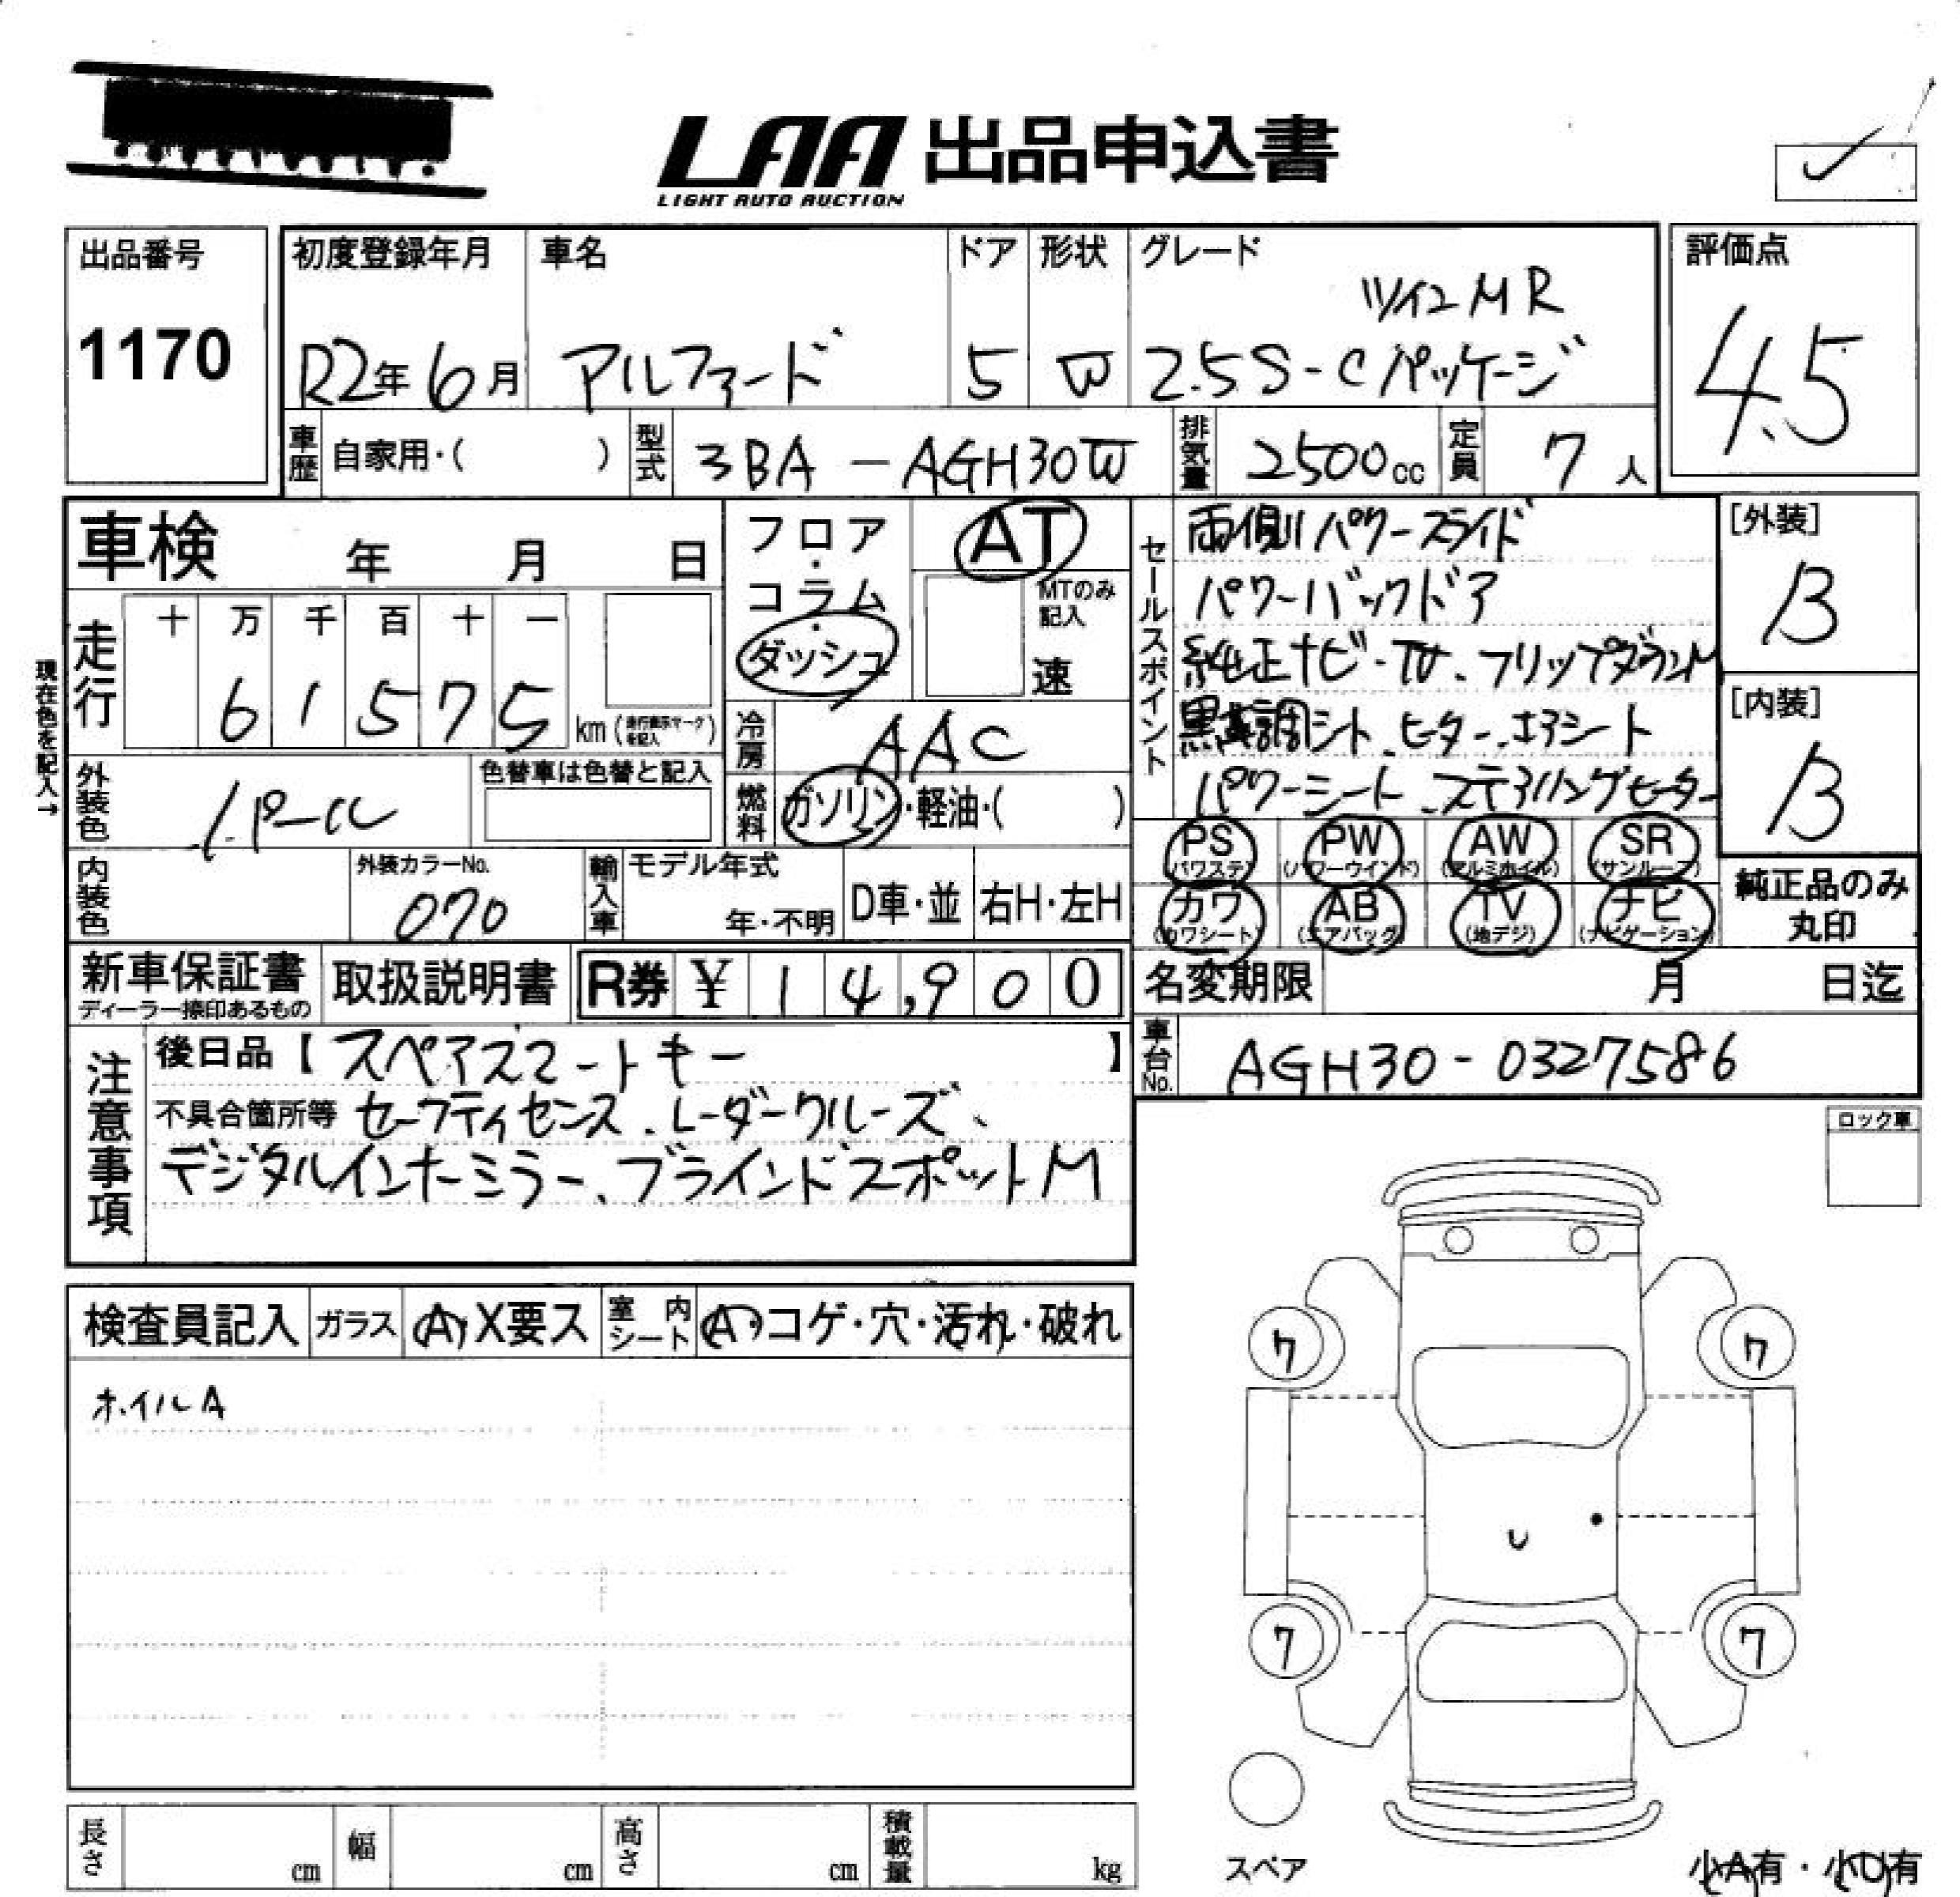 LAA 出品申込書
LIGHT AUTO AUCTION
出品番号
1170
初度登録年月
R2年6月
車名
アルファード
ドア
5
形状
W
グレード
ツインMR
2.5S-Cパッケージ
評価点
4.5
車歴
自家用・( )
型式
3BA-AGH30W
排気量
2500cc
定員
7人
車検 年 月 日
走行
十 万 千 百 十 一
6 1 5 7 5 km (走行表示マークを記入)
現在色を記入→
外装色
パール
色替車は色替と記入
内装色
外装カラーNo.
070
フロア・コラム・ダッシュ
AT
MTのみ記入
速
冷房
AAC
燃料
ガソリン・軽油・( )
輸入車
モデル年式
年・不明
D車・並
右H・左H
セールスポイント
両側パワースライド
パワーバックドア
純正ナビ・TV、フリップダウンM
黒革調シート、ヒーター、エアシート
パワーシート、ステアリングヒーター
[外装]
B
[内装]
B
PS (パワステ)
PW (パワーウインド)
AW (アルミホイル)
SR (サンルーフ)
カワ (カワシート)
AB (エアバッグ)
TV (地デジ)
ナビ (ナビゲーション)
純正品のみ丸印
新車保証書
ディーラー捺印あるもの
取扱説明書
R券 ¥ 14,900
名変期限 月 日迄
車台No.
AGH30-0327586
注意事項
後日品【スペアスマートキー】
不具合箇所等 セーフティセンス、レーダークルーズ、
デジタルインナーミラー、ブラインドスポットM
ロック車
検査員記入
ガラス
A・X要ス
室内シート
A・コゲ・穴・汚れ・破れ
ホイルA
7
7
7
7
スペア
長さ cm
幅 cm
高さ cm
積載量 kg
小A有・小U有